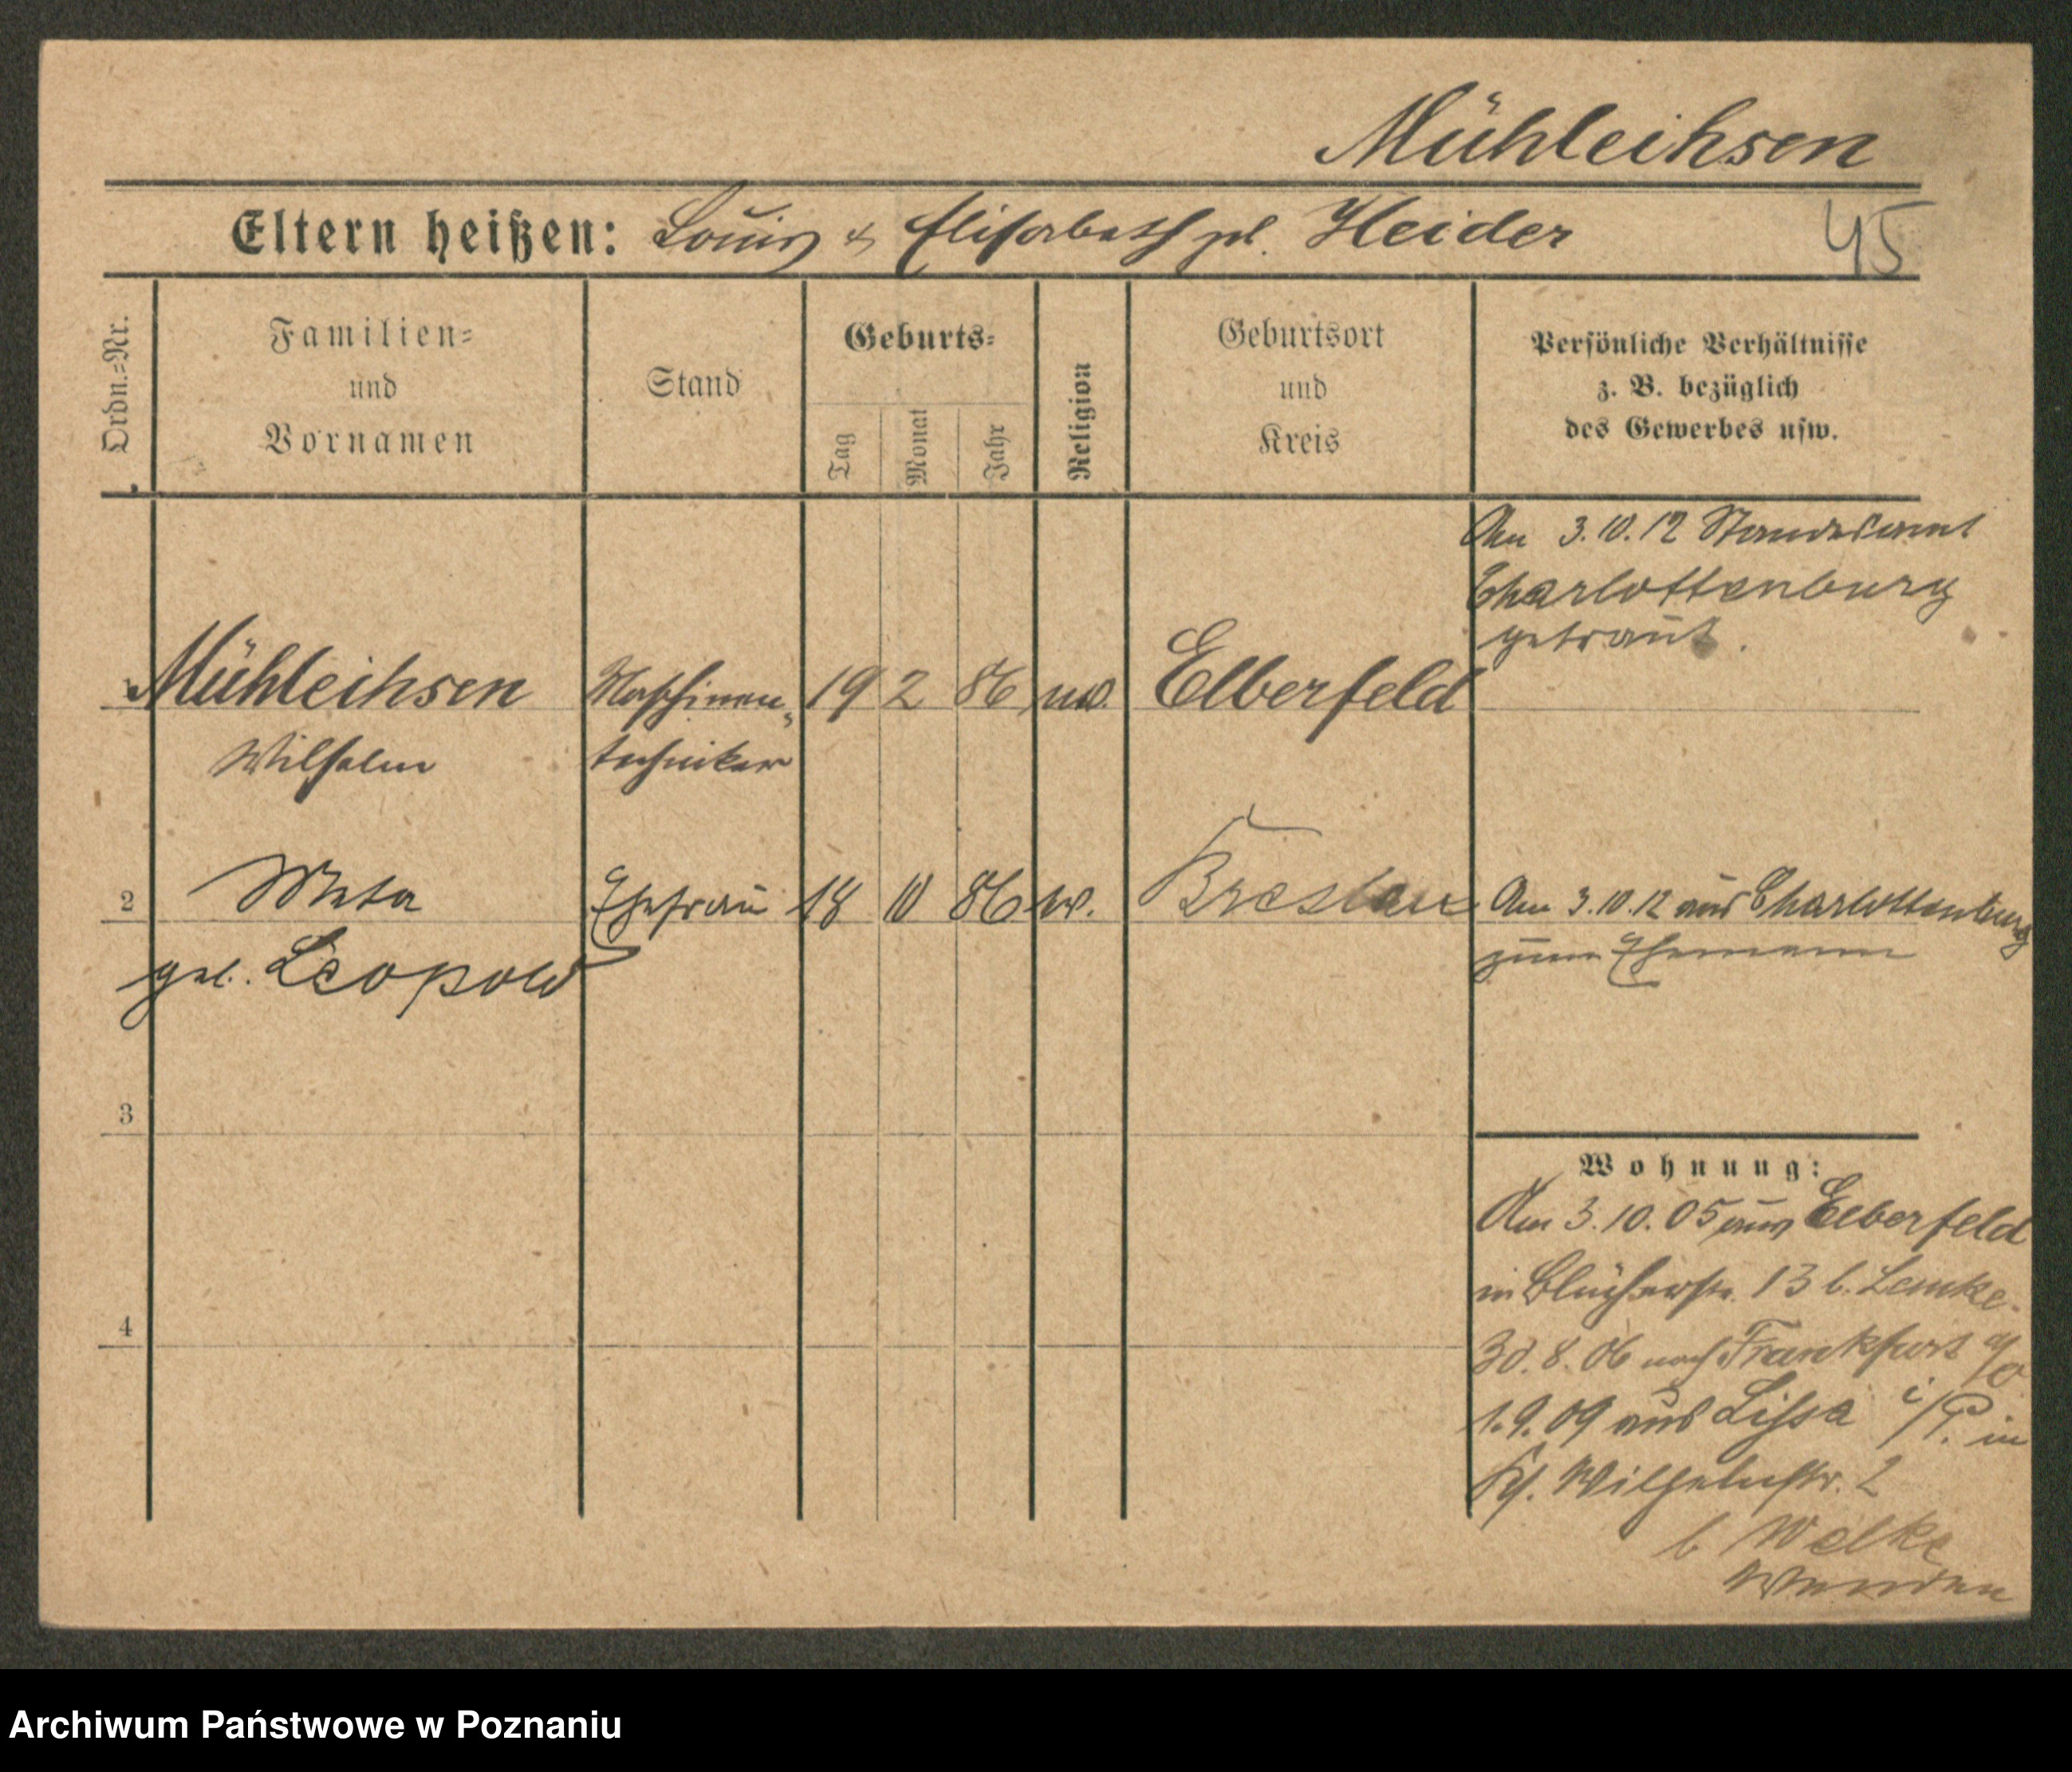 Mühleihsen
Eltern heißen: Louis & Elisabeth gb. Heider
45
Ordn.-Nr.
Familien-
und
Vornamen
Stand
Geburts-
Tag
Monat
Jahr
Religion
Geburtsort
und
Kreis
Persönliche Verhältnisse
z. B. bezüglich
des Gewerbes usw.
Am 3.10.12 Standesamt
Charlottenburg
getraut.
1 Mühleihsen Maschinen- 19 2 86 Elberfeld
Wilhelm techniker
2 Meta Ehefrau 18 10 86 Breslau Am 3.10.12 aus Charlottenburg
geb. Leopold zum Ehemann
3
Wohnung:
Am 3.10.05 aus Elberfeld
in Blücherstr. 13 b. Lemke.
30.8.06 nach Frankfurt a/O
4
1.9.09 aus Lissa i/P. in
Wilhelmstr. 2
b Welke
Wenden
Archiwum Państwowe w Poznaniu